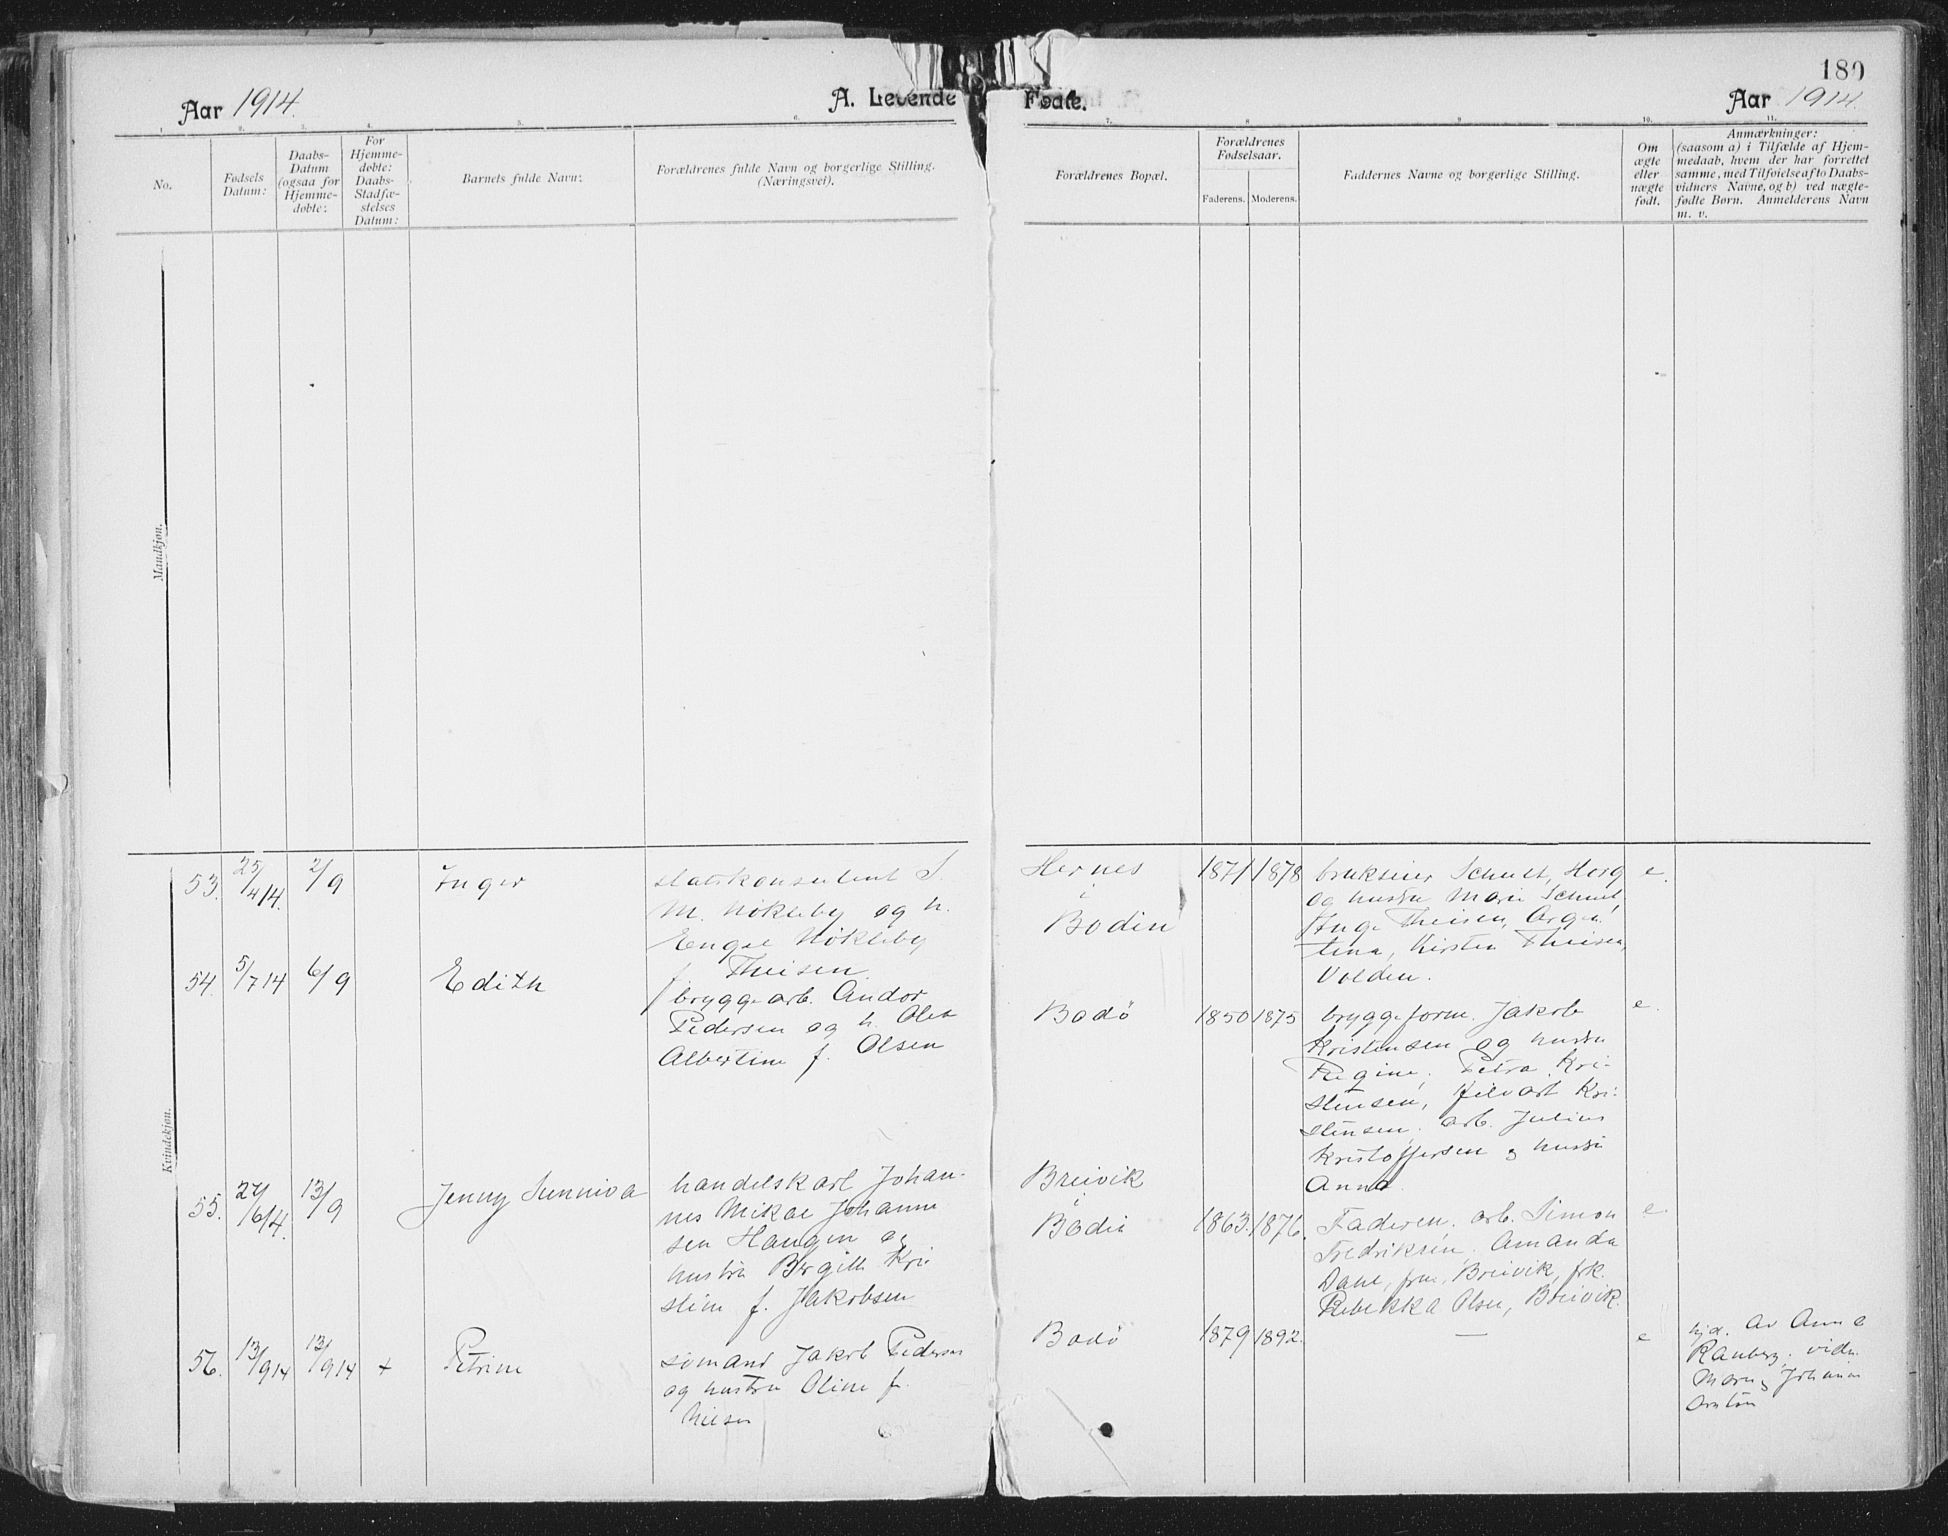 Aar 1914.
A. Levende
Fødte.
180
Aar 1914.
1.
2.
3.
4.
5.
6.
7.
8
9
10.
11.
No.
Fødsels
Datum:
Daabs-
Datum
(ogsaa for
Hjemme-
døbte:
For
Hjemme-
døbte:
Daabs-
Stadfæ-
stelses
Datum:
Barnets fulde Navn:
Forældrenes fulde Navn og borgerlige Stilling.
(Næringsvei).
Forældrenes Bopæl.
Forældrenes
Fødselsaar.
Faderens.
Moderens.
Faddernes Navne og borgerlige Stilling.
Om
ægte
eller
uægte
født.
Anmærkninger:
(saasom a) i Tilfælde af Hjem-
medaab, hvem der har forrettet
samme, med Tilføielse af to Daabs-
vidners Navne, og b) ved uægte-
fødte Børn. Anmelderens Navn
m. v.
Mandkjøn.
Kvindekjøn.
53.
25/4 14.
2/9
Inger
statskonsulent S.
M. Nøkleby og h.
Nøkleby
f. Theisen
Hernes
i
Bodin
1871
1878
brukseier Schult,
og hustru Marie Schult,
Theisen, Argen
tina, Kirsten Theisen,
Volden.
e.
54.
5/7 14
6/9
Edith
bryggearb. Andor
Pedersen og h.
Albertine f. Olsen
Bodø
1850
1875
bryggeform. Jakob
Kristensen og hustru
Regine. Petra Kri-
stensen, Kri-
stensen. arb. Julius
Kristoffersen og hustru
Anna.
e.
55.
27/6 14.
13/9
Jenny Sunniva
handelskarl Johan-
nes Mikal Johanne
sen Haugen og
hustru Birgitte Kri
stine f. Jakobsen
Breivik
i
Bodin
1863.
1876.
Faderen. arb. Simon
Fredriksen. Amanda
Dane, frue, Breivik, frk.
Rebekka Olsen, Breivik.
e.
56.
13/9 14
13/9 14
+
Petrine
sømand Jakob Pedersen
og hustru Oline f.
Nilsen
Bodø
1879
1892.
—
e
hjd. av Anne
Ranberg. vidn.
Johanna